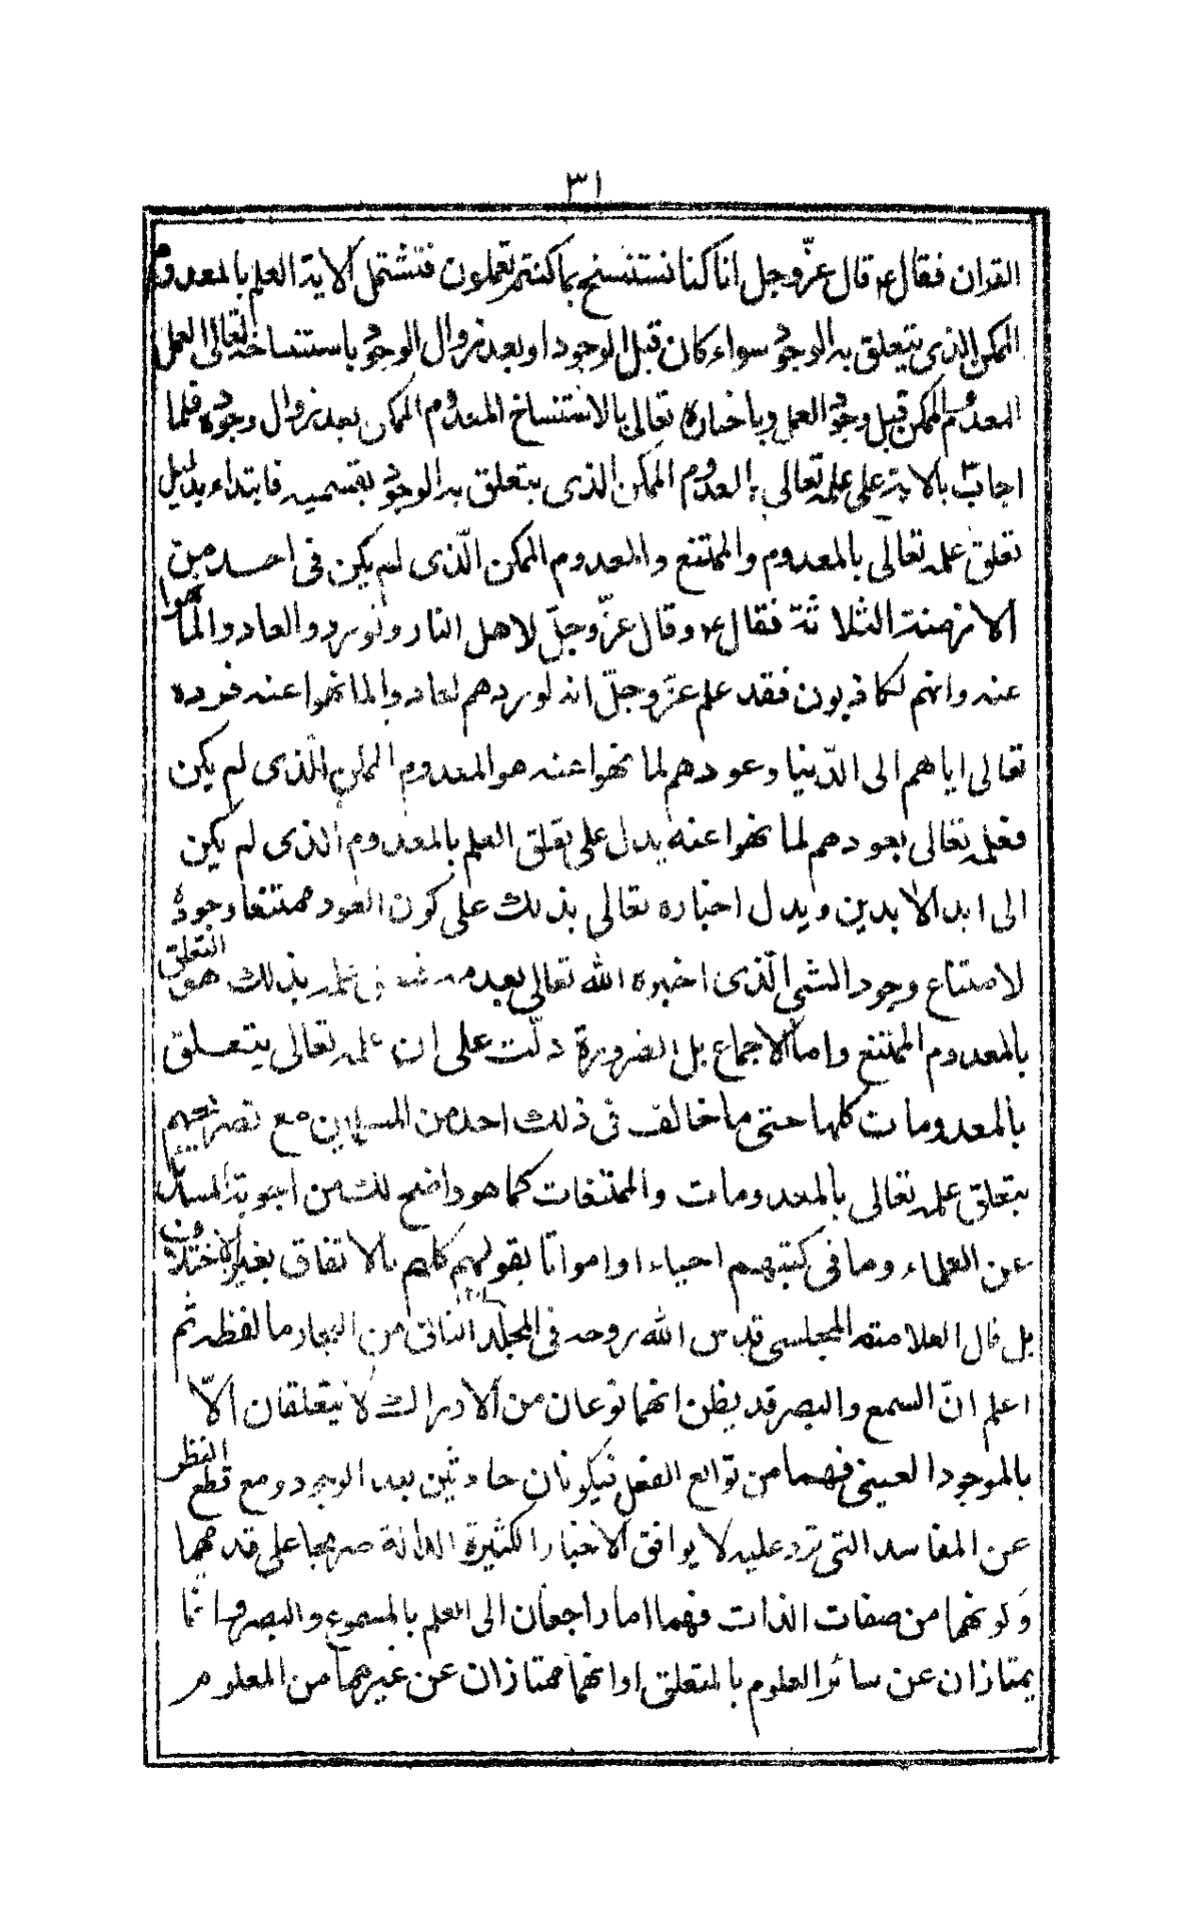 ٣١
القران فقال ع قال عزّ وجل انا كنا نستنسخ بما كنتم تعملون فتشتمل الاية العلم بالمعدوم
الممكن الذى يتعلق به الوجود سواء كان قبل الوجود او بعد زوال الوجود باستنساخه تعالى العمل
المعدوم الممكن قبل وجود العمل وباخباره تعالى بالاستنساخ المعدوم الممكن بعد زوال وجوده فلما
اجاب بالاية على علمه تعالى بالمعدوم الممكن الذى يتعلق به الوجود بقسميه فابتداء بدليل
تعلق علمه تعالى بالمعدوم والممتنع والمعدوم الممكن الّذى لم يكن فى احد من
الازمنة الثلاثة فقال ع وقال عزّ وجلّ لاهل النار ولو ردو العادو الما نهوا
عنه وانهم لكاذبون فقد علم عزّ وجلّ انه لو ردهم لعادو الما نهوا عنه فرده
تعالى اياهم الى الدّنيا وعودهم لما نهوا عنه هو المعدوم الممكن الّذى لم يكن
فعلمه تعالى بعودهم لما نهوا عنه يدل على تعلق العلم بالمعدوم الذى لم يكن
الى ابد الابدين ويدل اخباره تعالى بذلك على كون العود ممتنعا وجوده
لامتناع وجود الشئ الّذى اخبره الله تعالى بعدمه علمه بذلك هو التعلق
بالمعدوم الممتنع واما الاجماع بل الضرورة دلّت على ان علمه تعالى يتعلق
بالمعدومات كلها حتى ما خالف فى ذلك احد من المسلمين مع تصريحهم
بتعلق علمه تعالى بالمعدومات والممتنعات كما هو واضح لك من اجوبة المسائل
عن العلماء وما فى كتبهم احياء او امواتا بقولهم كلهم بالاتفاق بغير الاختلاف
بل قال العلامة المجلسى قدس الله روحه فى المجلد الثانى من البحار ما لفظه ثم
اعلم انّ السمع والبصر قد يظن انهما نوعان من الادراك لا يتعلقان الّا
بالموجود العينى فهما من توابع الفعل فيكونان حادثين بعد الوجود ومع قطع النظر
عن المفاسد التى ترد عليه لا يوافق الاخبار الكثيرة الدالة صريحا على قدمهما
وكونهما من صفات الذات فهما اما راجعان الى العلم بالمسموع والبصر وانما
يمتازان عن سائر العلوم بالمتعلق او انهما ممتازان عن غيرهما من العلوم